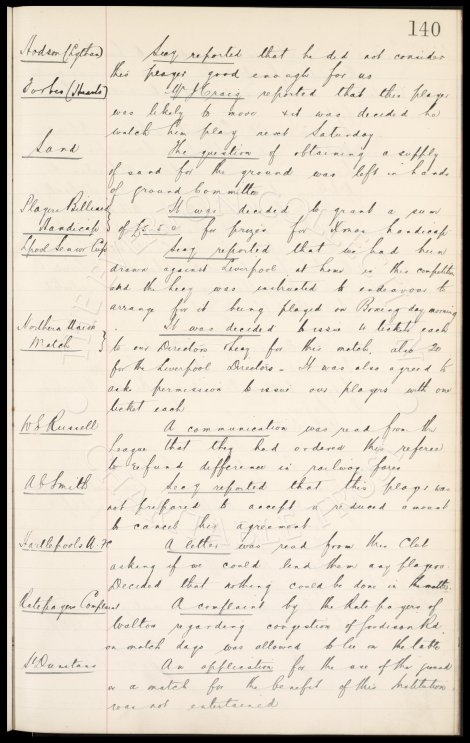 140
Hodson (Lytham) Secy reported that he did not consider
this player good enough for us
Forbes (Hearts) Mr J Craig reported that this player
was likely to move & it was decided he
watch him play next Saturday
Sand The question of obtaining a supply
of sand for the ground was left in hands
of Ground Committee
Players Billiard It was decided to grant a sum
Handicap of £5.5.0 for prizes for Xmas handicap
Lpool Senior Cup Secy reported that we had been
drawn against Liverpool at home in this competition
and the Secy was instructed to endeavour to
arrange for it being played on Boxing day morning
Northern Union It was decided to issue 4 tickets each
Match to our Directors & Secy for this match, also 20
for the Liverpool Directors - It was also agreed to
ask permission to issue our players with one
ticket each
W E Russell A communication was read from the
League that they had ordered this referee
to refund difference in railway fares
A C Smith Secy reported that this player was
not prepared to accept a reduced amount
to cancel his agreement
Hartlepools U. FC A letter was read from this Club
asking if we could lend them any players.
Decided that nothing could be done in the matter.
Ratepayers Complaint A complaint by the Rate payers of
Walton regarding congestion of Goodison Rd.
on match days was allowed to lie on the table
St Dunstans An application for the use of the ground
or a match for the benefit of this Institution
was not entertained